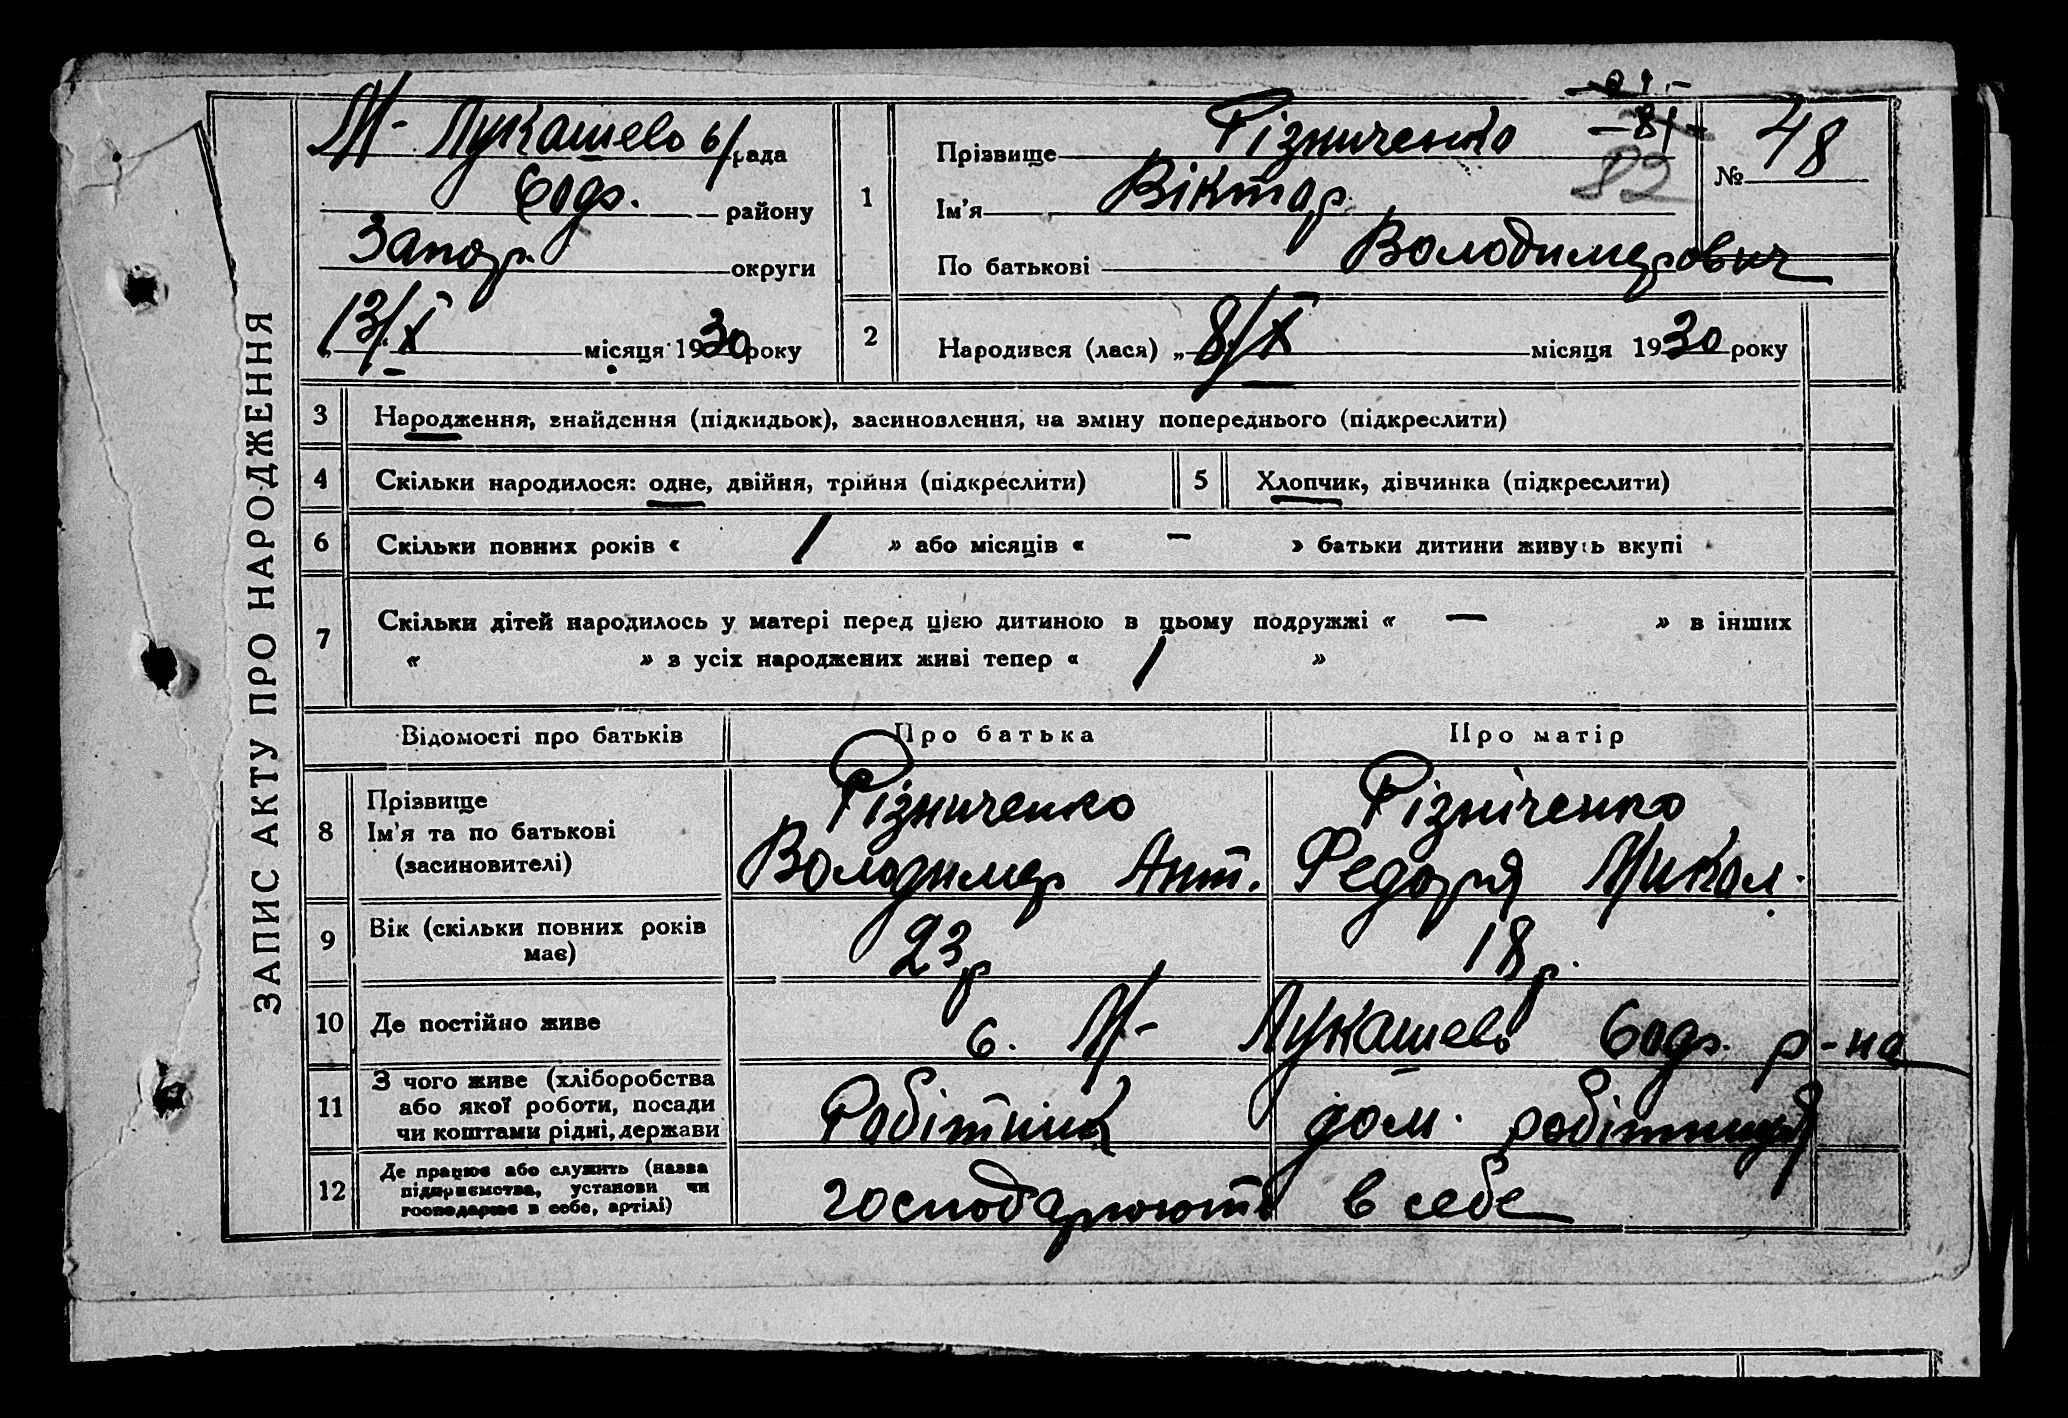 ЗАПИС АКТУ ПРО НАРОДЖЕННЯ
М-Лукашево с/рада
Софг. району
Запор. округи
13/X місяця 1930 року
1 Прізвище Різниченко
Ім'я Віктор
По батькові Володимерович
-81-
82
№ 48
2 Народився (лася) „ 8/X місяця 1930 року
3 Народження, знайдення (підкидьок), засиновлення, на зміну попереднього (підкреслити)
4 Скільки народилося: одне, двійня, трійня (підкреслити)
5 Хлопчик, дівчинка (підкреслити)
6 Скільки повних років « 1 » або місяців « — » батьки дитини живуть вкупі
7 Скільки дітей народилось у матері перед цією дитиною в цьому подружжі « — » в інших
« » з усіх народжених живі тепер « 1 »
Відомості про батьків Про батька Про матір
8 Прізвище
Ім'я та по батькові
(засиновителі)
Різниченко
Володимер Ант.
Різніченко
Федоря Микол.
9 Вік (скільки повних років
має)
23 р
18 р.
10 Де постійно живе с. М-Лукашево р-на
11 З чого живе (хліборобства
або якої роботи, посади
чи коштами рідні, держави
Робітник
дом. робітниця
12 Де працює або служить (назва
підприємства, установи чи
господарює в себе, артілі)
господарюють в себе